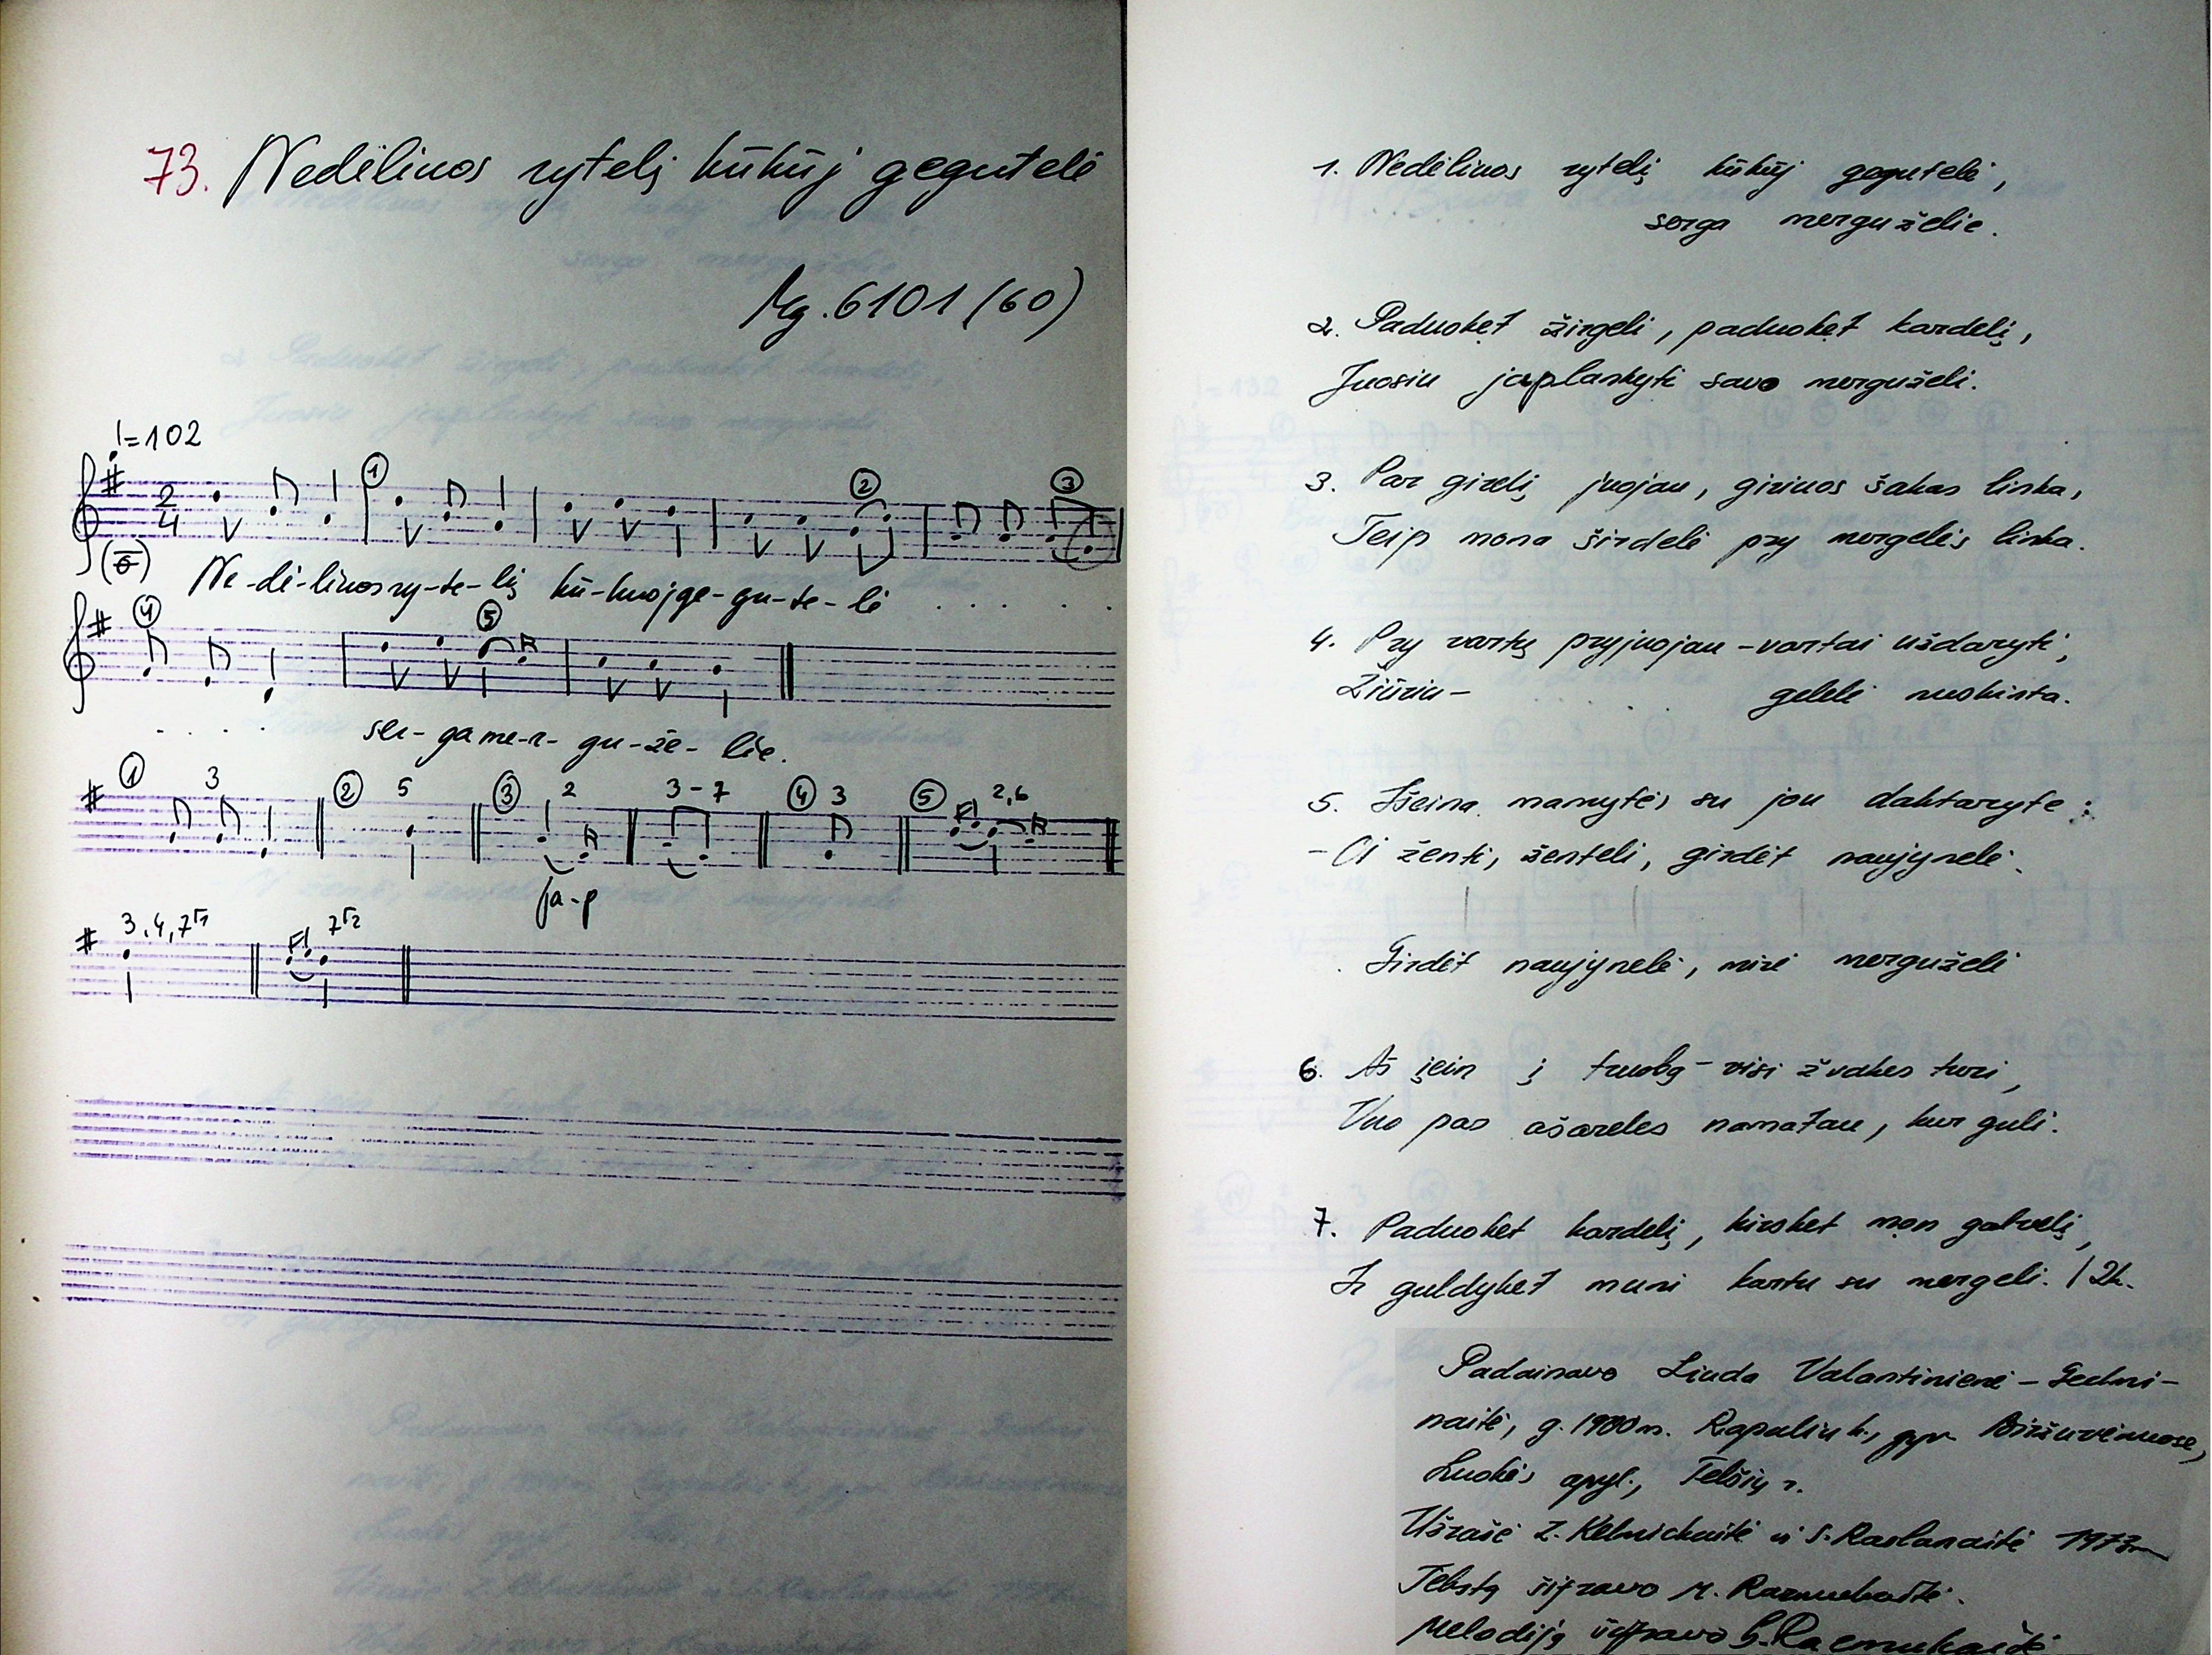 73. Nedėlinos rytelį kūkūj gegutelė
Mg. 6101 (60)
♩=102
① ② ③
2/4
(6)
Ne-dė-linos ry-te-lį kū-kuoj ge-gu-te-lė . . . . .
④ ⑤
. . . . ser-ga me-r-gu-že-lie.
① 3 ② 5 ③ 2 3-7 ④ 3 ⑤ 2,6
ja-p
3,4,7 1 7 2
1. Nedėlinos rytelį kūkūj gegutelė,
serga merguželie.
2. Paduoket žirgeli, paduoket kardelį,
Juosiu japlankyti savo merguželi.
3. Par girelį juojau, girinos šakas linka,
Teip mona širdelė pry mergelės linka.
4. Pry vartų pryjuojau – vartai uždaryti,
Žiūriu – . . . gelelė nuskinta.
5. Išeina mamytės su jou daktaryte:
– Oi ženti, ženteli, girdėt naujynelė.
Girdėt naujynelė, mirė merguželi
6. Aš įein į truobą – visi žvakes turi,
Vuo par ašareles namatau, kur guli.
7. Paduoket kardelį, kirsket mon galvelį,
Ir guldyket muni kartu su mergeli. / 2k.
Padainavo Liuda Valantinienė –
naitė, g. 1900 m. k., gyv. Biržuvėnuose,
Luokės apyl., Telšių r.
Užrašė Z. Kelmickaitė ir S. 1973 m
Tekstą šifravo M. Razmukaitė.
Melodiją šifravo Razmukaitė